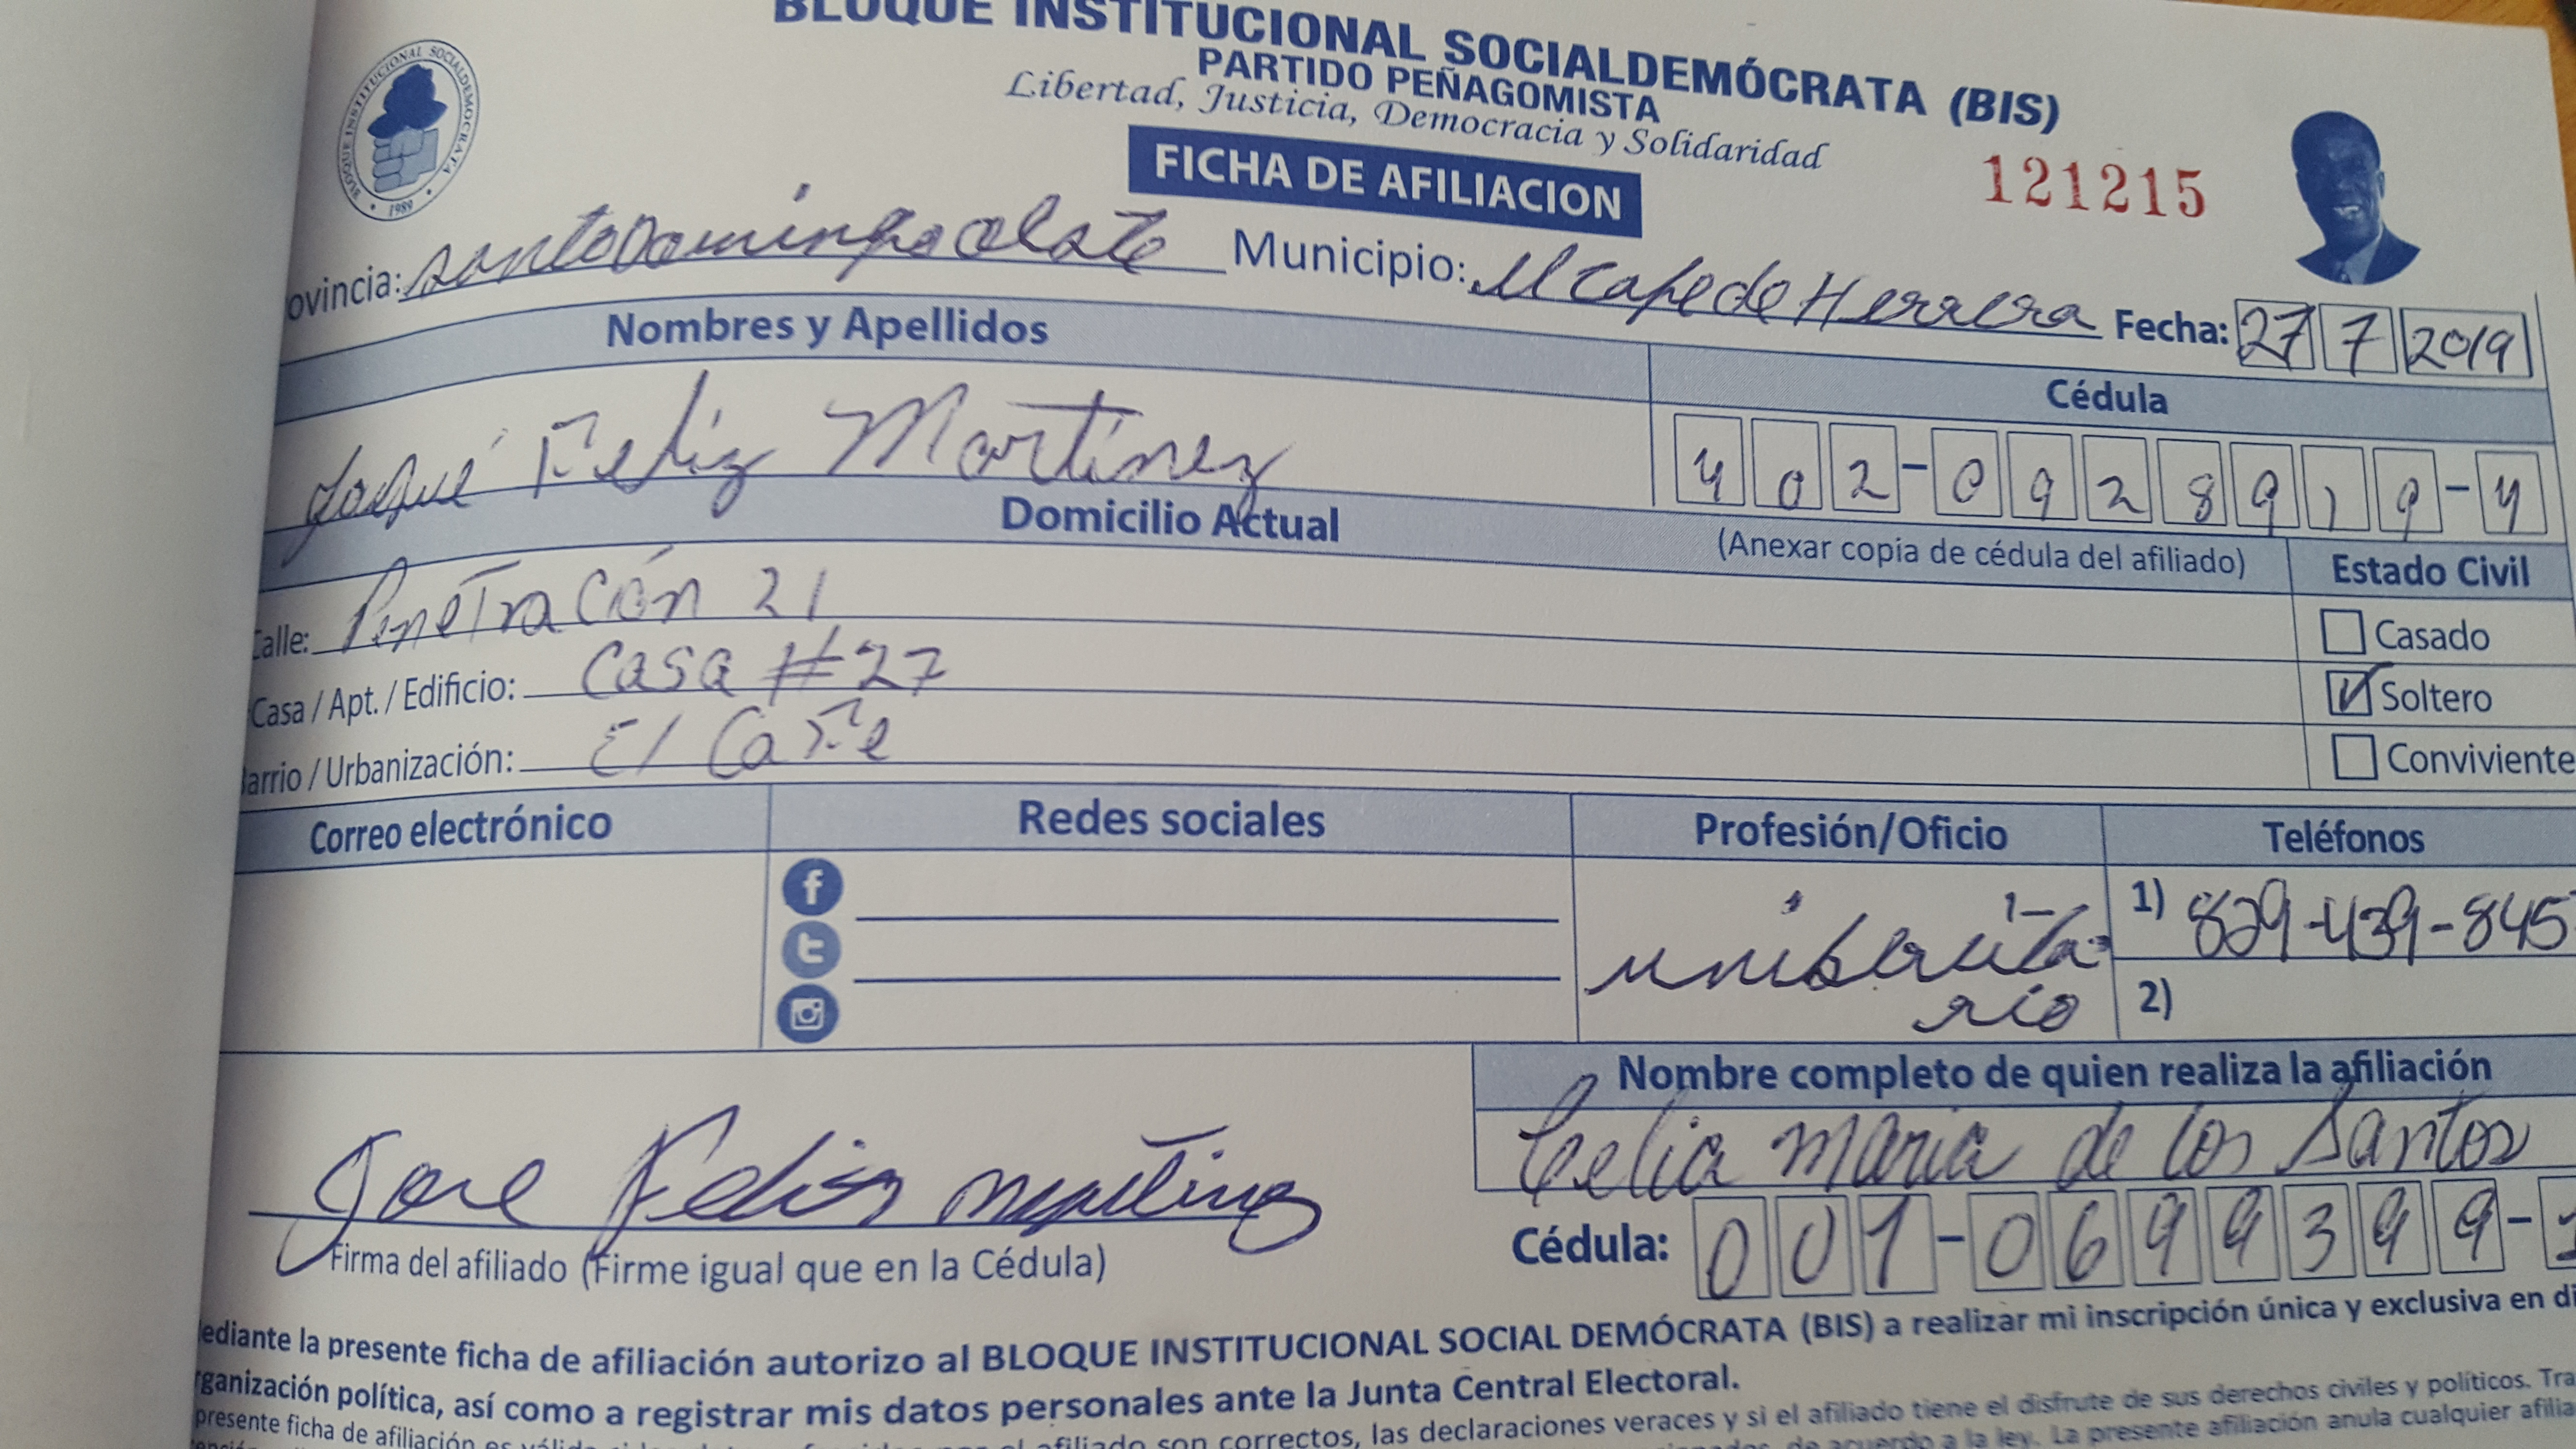 BLOQUE INSTITUCIONAL SOCIALDEMÓCRATA (BIS)
PARTIDO PEÑAGOMISTA
Libertad, Justicia, Democracia y Solidaridad
BLOQUE INSTITUCIONAL SOCIALDEMOCRATA
1989
FICHA DE AFILIACION
121215
ovincia: santo Domingo oeste Municipio: El Cafe de Herrera Fecha: 27 7 2019
Nombres y Apellidos
Cédula
Feliz Martínez
402-0928919-4
Domicilio Actual
(Anexar copia de cédula del afiliado)
Estado Civil
Calle: PeneTración 21
Casado
Casa / Apt. / Edificio: Casa #27
Soltero
Barrio / Urbanización: El CaFe
Conviviente
Correo electrónico Redes sociales Profesión/Oficio Teléfonos
1) 829-439-845
rio
2)
Nombre completo de quien realiza la afiliación
Celia Maria de los Santos
Jose Feliz
Firma del afiliado (Firme igual que en la Cédula)
Cédula: 001-0699399-1
ediante la presente ficha de afiliación autorizo al BLOQUE INSTITUCIONAL SOCIAL DEMÓCRATA (BIS) a realizar mi inscripción única y exclusiva en di
rganización política, así como a registrar mis datos personales ante la Junta Central Electoral.
presente ficha de afiliación es son correctos, las declaraciones veraces y si el afiliado tiene el disfrute de sus derechos civiles y políticos. Tra
de acuerdo a la ley. La presente afiliación anula cualquier afilia